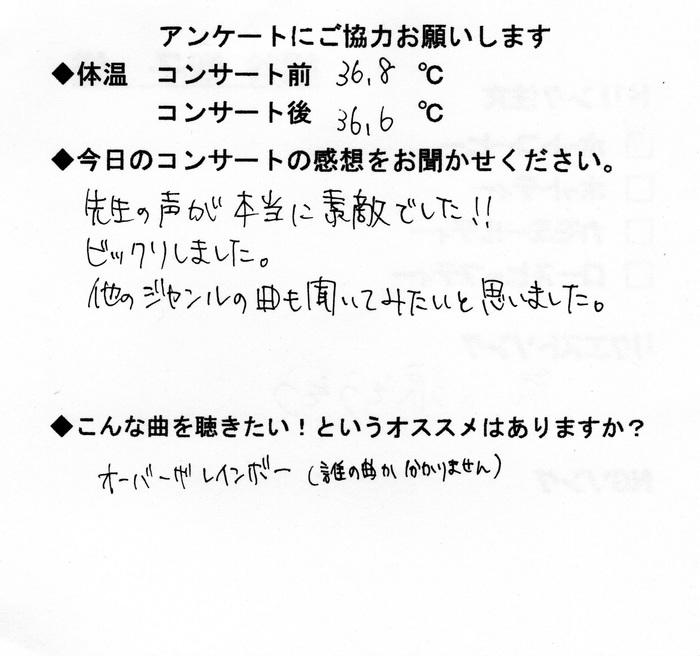 アンケートにご協力お願いします
◆体温　コンサート前 36.8 ℃
コンサート後 36.6 ℃
◆今日のコンサートの感想をお聞かせください。
先生の声が本当に素敵でした!!
ビックリしました。
他のジャンルの曲も聞いてみたいと思いました。
◆こんな曲を聴きたい！というオススメはありますか？
オーバーザレインボー（誰の曲か分かりません）